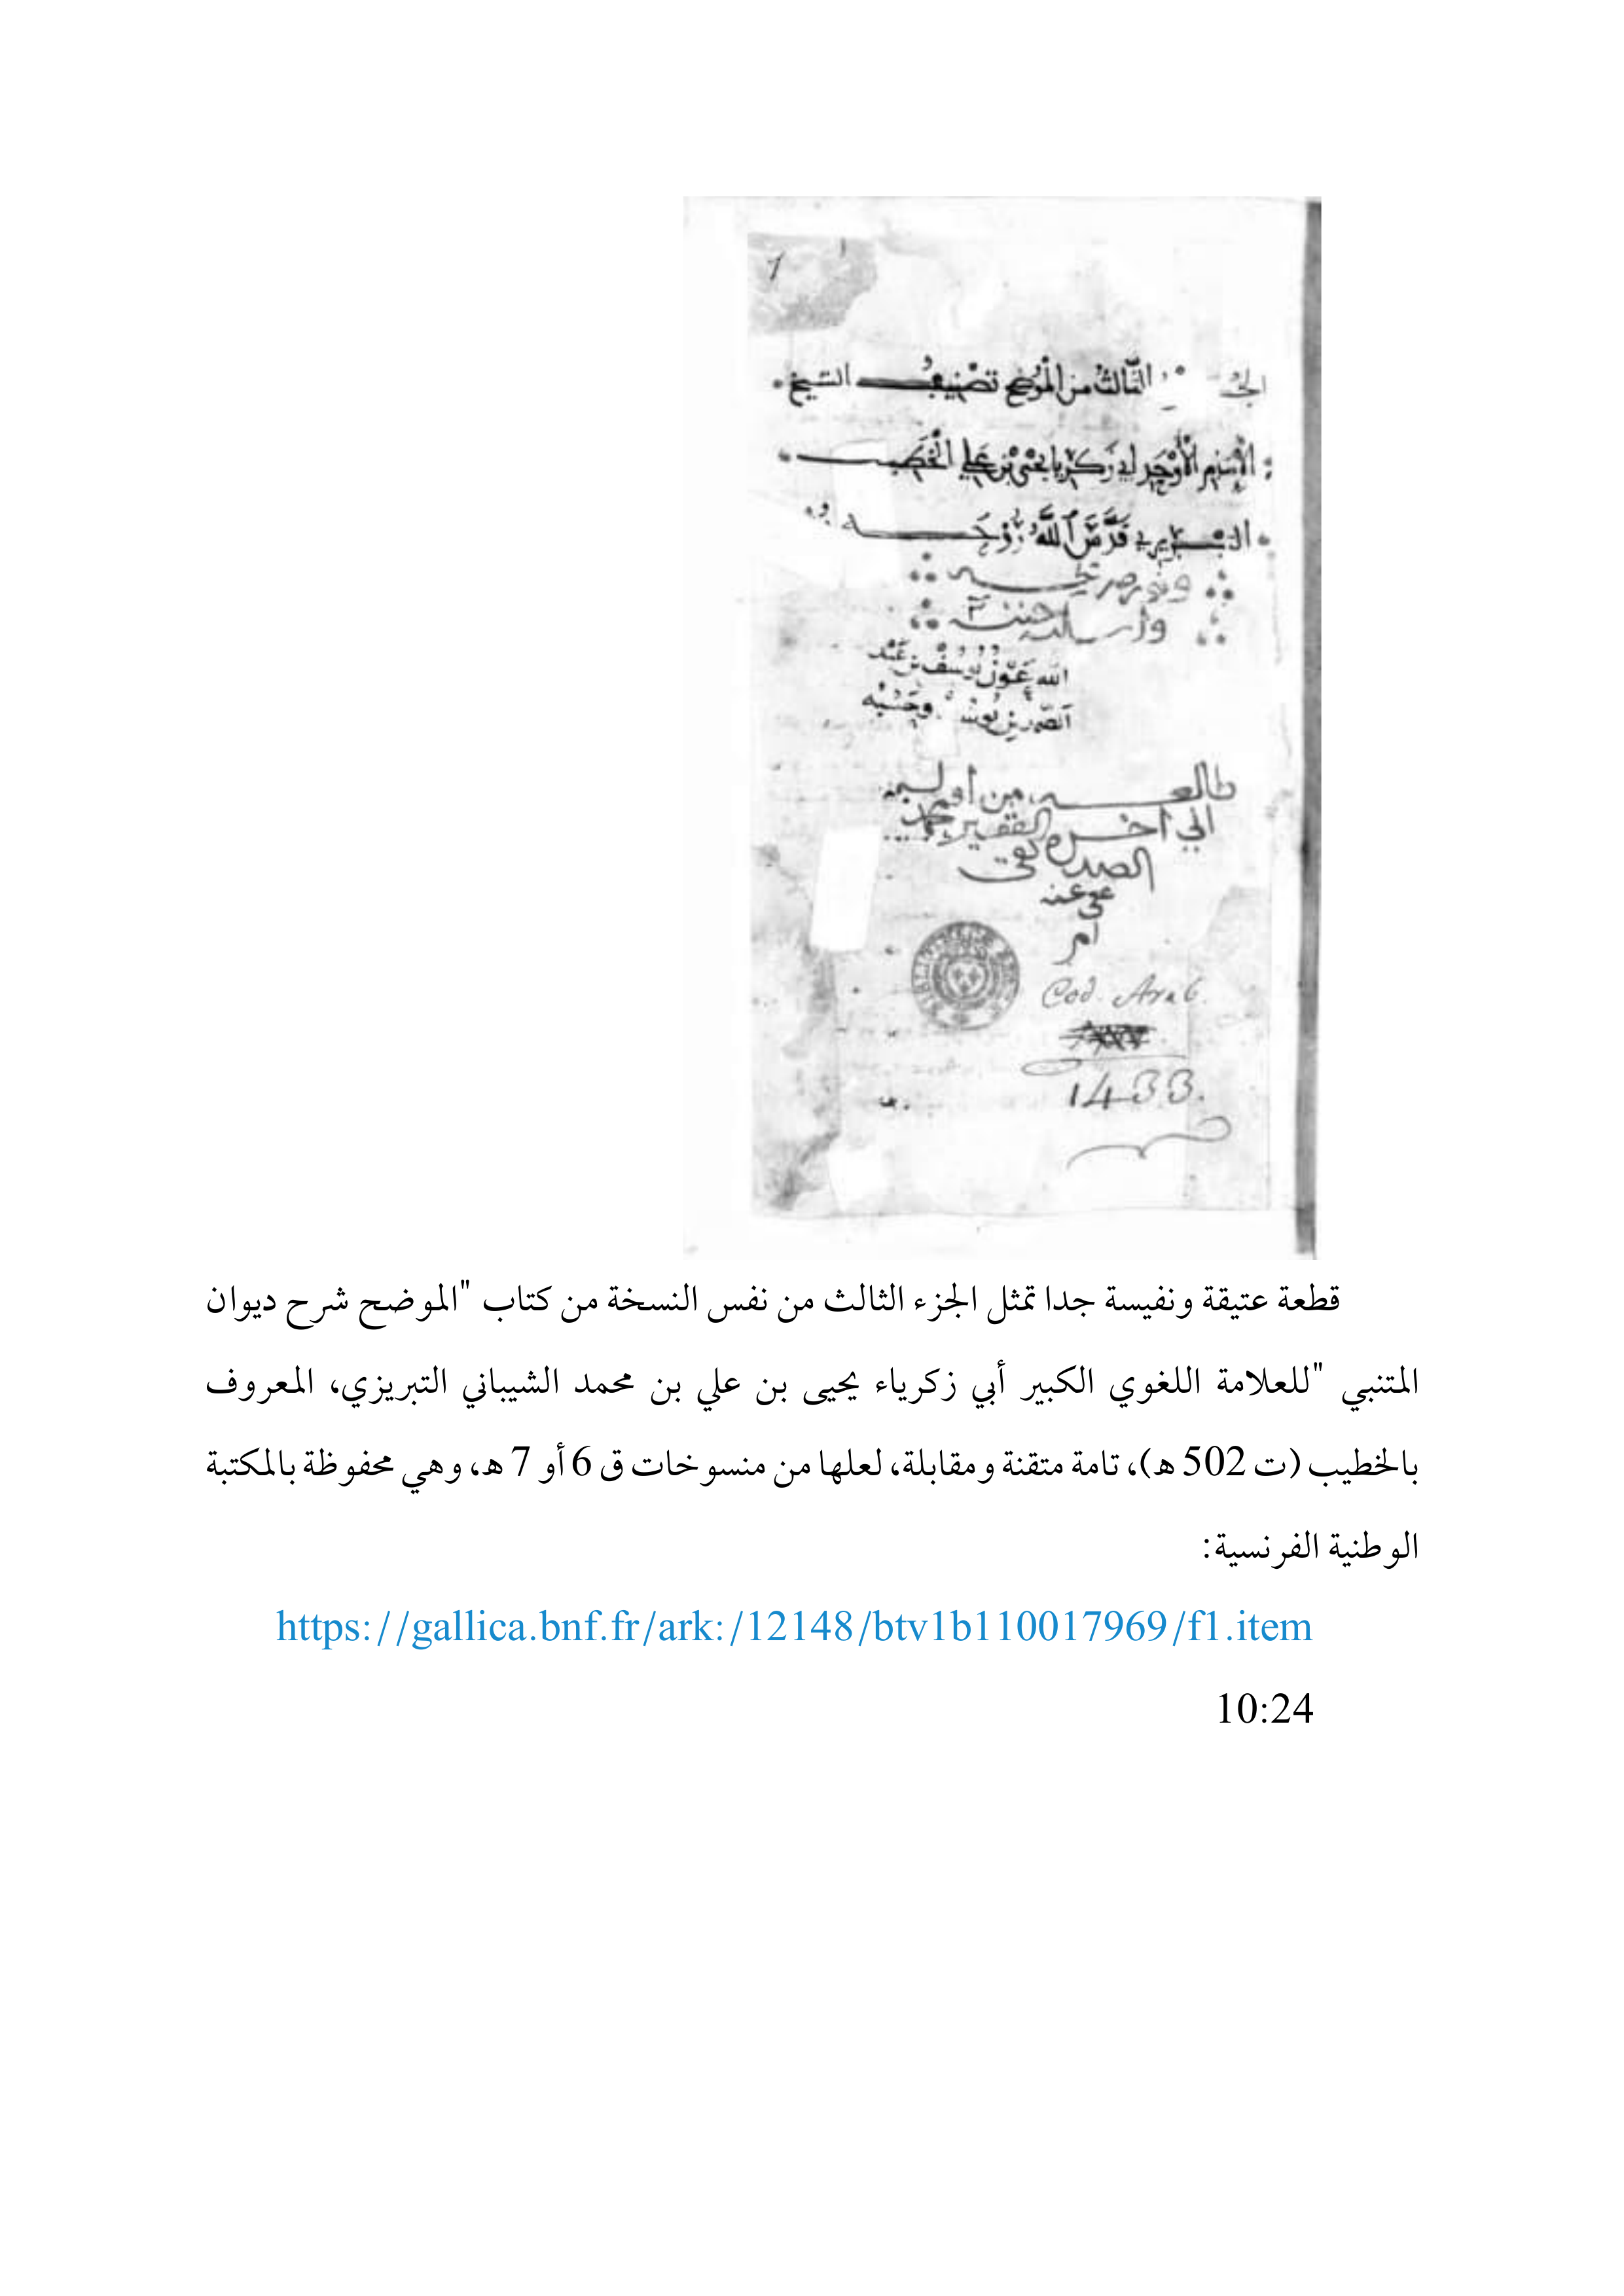 1
الجزء الثالث من الموضح تصنيف الشيخ
الإمام الأوحد أبي زكريا يحيى بن علي الخطيب
التبريزي قدس الله روحه
الله عون يوسف بن عبد
وحسبه
طالعه من أوله
إلى آخره الفقير محمد
الصدر
عفي عنه
Cod. Arab.
1433.
قطعة عتيقة ونفيسة جدا تمثل الجزء الثالث من نفس النسخة من كتاب "الموضح شرح ديوان
المتنبي "للعلامة اللغوي الكبير أبي زكرياء يحيى بن علي بن محمد الشيباني التبريزي، المعروف
بالخطيب (ت 502 ه)، تامة متقنة ومقابلة، لعلها من منسوخات ق 6 أو 7 ه، وهي محفوظة بالمكتبة
الوطنية الفرنسية:
https://gallica.bnf.fr/ark:/12148/btv1b110017969/f1.item
10:24